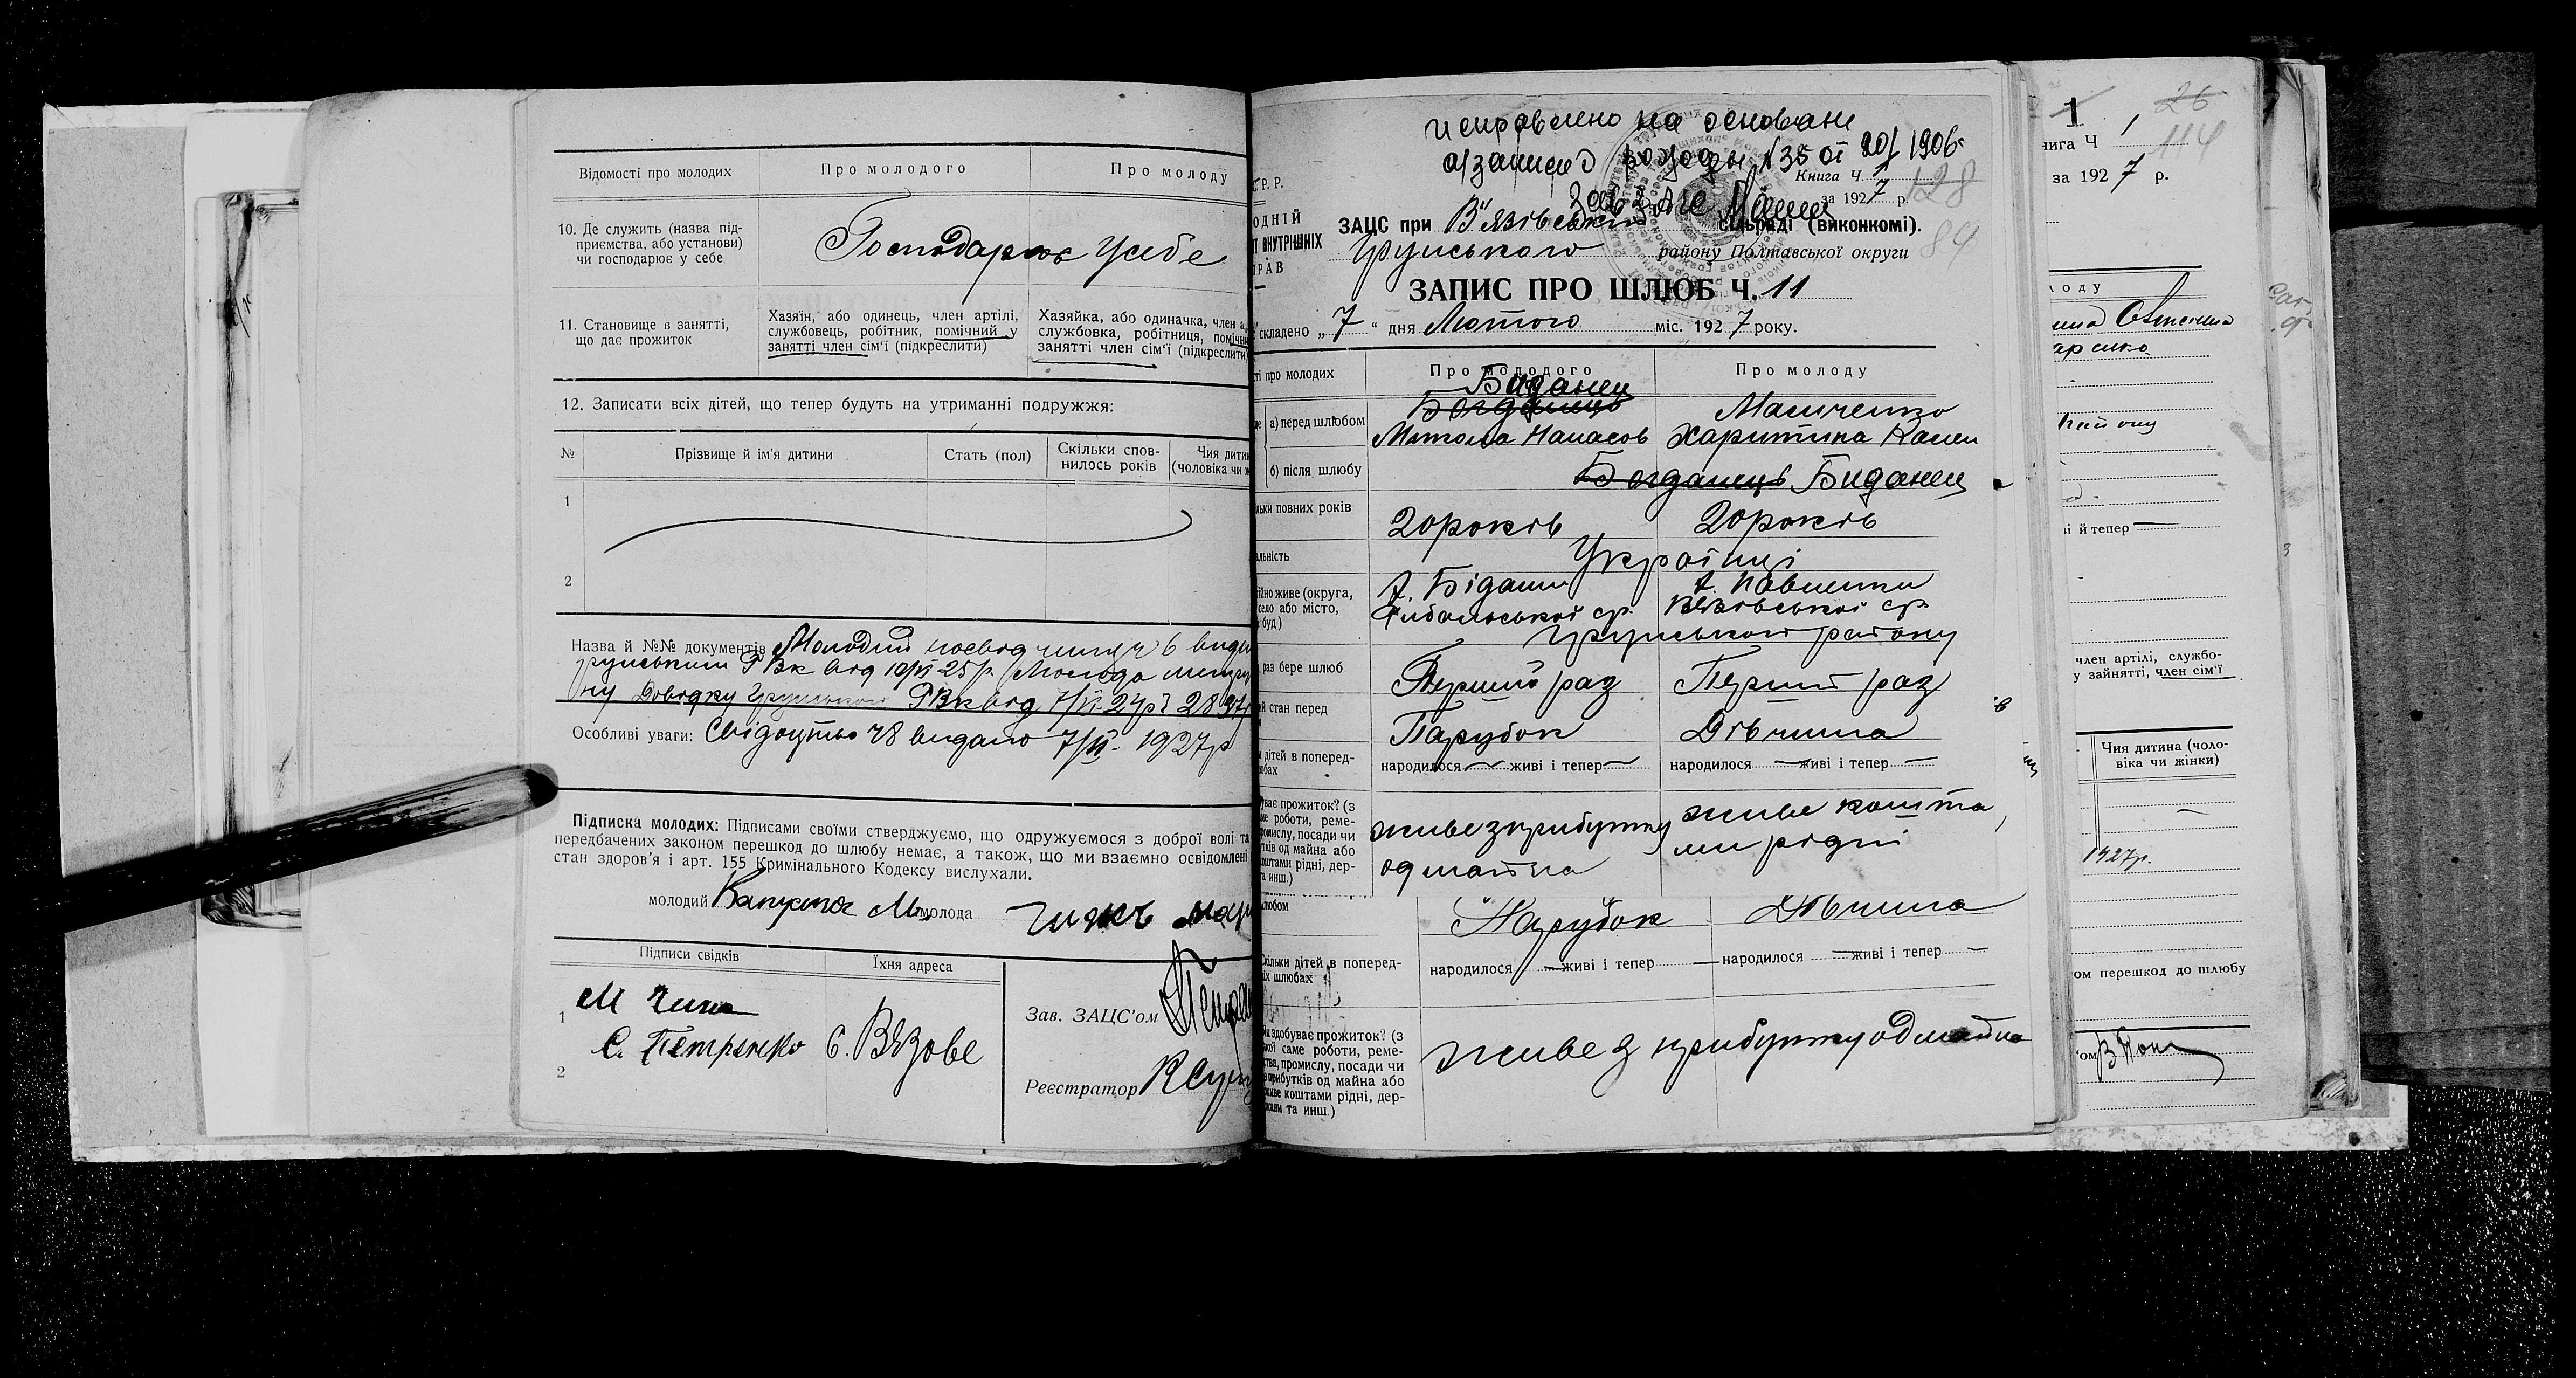 Відомості про молодих
Про молодого
Про молоду
10. Де служить (назва під-
приємства, або установи)
чи господарює у себе
Господарює у себе
11. Становище в занятті,
що дає прожиток
Хазяїн, або одинець, член артілі,
службовець, робітник, помічний у
занятті член сім'ї (підкреслити)
Хазяйка, або одиначка, член а
службовка, робітниця, помічн
занятті член сім'ї (підкреслити)
12. Записати всіх дітей, що тепер будуть на утриманні подружжя:
№
Прізвище й ім'я дитини
Стать (пол)
Скільки спов-
нилось років
Чия дитин
(чоловіка чи ж
1
2
Назва й №№ документів Молодий посвід ч 6 вида
грунським РВК від 10/ІІІ-25р. Молода
ну Довідку Грунського РВК від 7/ІІ-24р
Особливі уваги: Свідоцтво ч8 видано 7/ІІ- 1927р
Підписка молодих: Підписами своїми стверджуємо, що одружуємося з доброї волі та
передбачених законом перешкод до шлюбу немає, а також, що ми взаємно освідомлені
стан здоров'я і арт. 155 Кримінального Кодексу вислухали.
молодий Капуста М молода
Підписи свідків
Їхня адреса
1
С. Петренко
2
с. Вязове
Зав. ЗАЦС'ом
Реєстратор
исправлено на основан
а/записи о рожден №35 от 20/ 1906
Зав
С.Р.Р.
ОДНІЙ
Т ВНУТРІШНІХ
РАВ
Книга Ч. 1
за 1927 р.
128
84
ЗАЦС при В'язівській сільраді (виконкомі).
Грунського району Полтавської округи
ЗАПИС ПРО ШЛЮБ Ч. 11
складено „7" дня Лютого міс. 1927 року.
ті про молодих
Про молодого
Про молоду
а) перед шлюбом
Биданец
Богданець
Микола Панасов
Харитина
б) після шлюбу
Богданець Биданец
льки повних років
20 років
20 років
альність
Українці
ійно живе (округа,
село або місто,
буд)
х. Бідани
Рибальської ср.
х. Павленки
Вязівської ср.
Грунського району
раз бере шлюб
Перший раз
Перший раз
й стан перед
Парубок
Дівчина
и дітей в поперед-
юбах
народилося живі і тепер
народилося живі і тепер
уває прожиток? (з
ме роботи, реме-
ромислу, посади чи
тків од майна або
коштами рідні, дер-
та инш.)
живе з прибутку
од майна
живе кошта
ми рідні
любом
Парубок
Дівчина
Скільки дітей в поперед-
іх шлюбах
народилося живі і тепер
народилося живі і тепер
Як здобуває прожиток? (з
якої саме роботи, реме-
ства, промислу, посади чи
з прибутків од майна або
живе коштами рідні, дер-
жави та инш.)
живе з прибутку од майна
1
26
нига Ч 1
114
за 1927 р.
лоду
району
ві й тепер
член артілі, службо-
у зайнятті, член сім'ї
Чия дитина (чоло-
віка чи жінки)
1927р.
ом перешкод до шлюбу
'ом